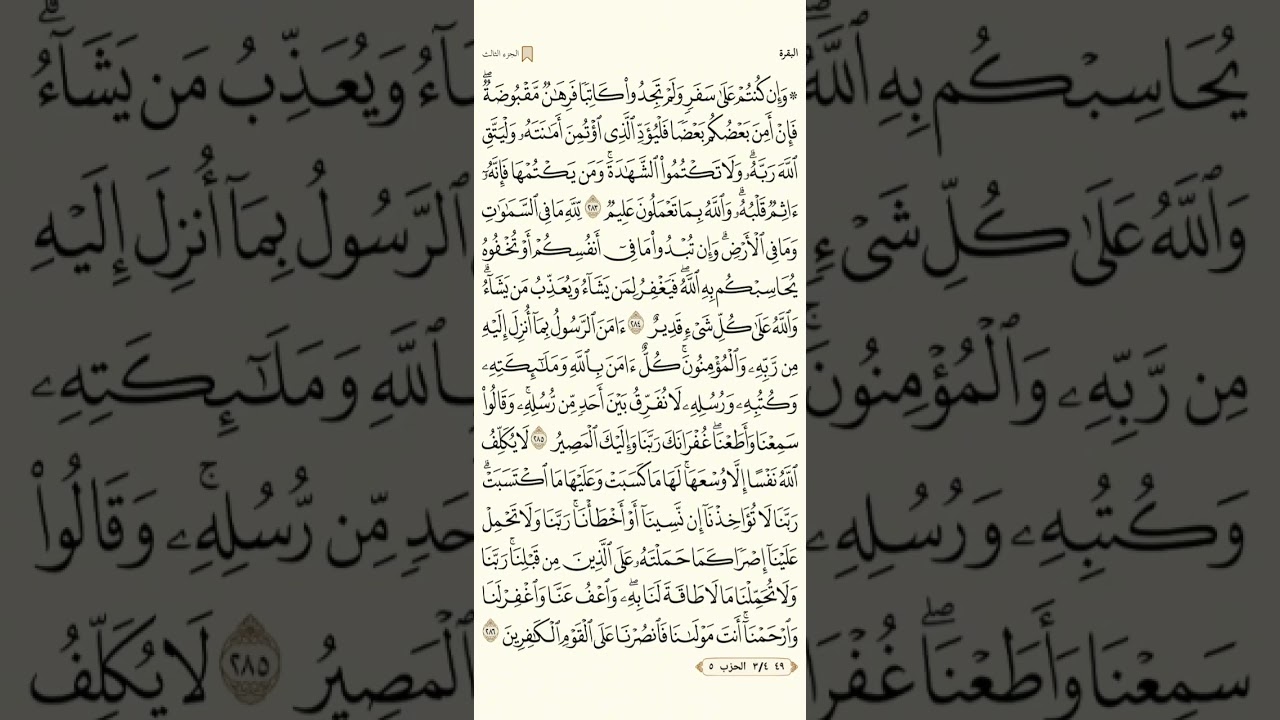 البقرة الجزء الثالث
* وَإِن كُنتُمْ عَلَىٰ سَفَرٍ وَلَمْ تَجِدُوا۟ كَاتِبًا فَرِهَٰنٌ مَّقْبُوضَةٌ ۖ
فَإِنْ أَمِنَ بَعْضُكُم بَعْضًا فَلْيُؤَدِّ ٱلَّذِى ٱؤْتُمِنَ أَمَٰنَتَهُۥ وَلْيَتَّقِ
ٱللَّهَ رَبَّهُۥ ۗ وَلَا تَكْتُمُوا۟ ٱلشَّهَٰدَةَ ۚ وَمَن يَكْتُمْهَا فَإِنَّهُۥٓ
ءَاثِمٌ قَلْبُهُۥ ۗ وَٱللَّهُ بِمَا تَعْمَلُونَ عَلِيمٌ ٢٨٣ لِّلَّهِ مَا فِى ٱلسَّمَٰوَٰتِ
وَمَا فِى ٱلْأَرْضِ ۗ وَإِن تُبْدُوا۟ مَا فِىٓ أَنفُسِكُمْ أَوْ تُخْفُوهُ
يُحَاسِبْكُم بِهِ ٱللَّهُ ۖ فَيَغْفِرُ لِمَن يَشَآءُ وَيُعَذِّبُ مَن يَشَآءُ ۗ
وَٱللَّهُ عَلَىٰ كُلِّ شَىْءٍ قَدِيرٌ ٢٨٤ ءَامَنَ ٱلرَّسُولُ بِمَآ أُنزِلَ إِلَيْهِ
مِن رَّبِّهِۦ وَٱلْمُؤْمِنُونَ ۚ كُلٌّ ءَامَنَ بِٱللَّهِ وَمَلَٰٓئِكَتِهِۦ
وَكُتُبِهِۦ وَرُسُلِهِۦ لَا نُفَرِّقُ بَيْنَ أَحَدٍ مِّن رُّسُلِهِۦ ۚ وَقَالُوا۟
سَمِعْنَا وَأَطَعْنَا ۖ غُفْرَانَكَ رَبَّنَا وَإِلَيْكَ ٱلْمَصِيرُ ٢٨٥ لَا يُكَلِّفُ
ٱللَّهُ نَفْسًا إِلَّا وُسْعَهَا ۚ لَهَا مَا كَسَبَتْ وَعَلَيْهَا مَا ٱكْتَسَبَتْ ۗ
رَبَّنَا لَا تُؤَاخِذْنَآ إِن نَّسِينَآ أَوْ أَخْطَأْنَا ۚ رَبَّنَا وَلَا تَحْمِلْ
عَلَيْنَآ إِصْرًا كَمَا حَمَلْتَهُۥ عَلَى ٱلَّذِينَ مِن قَبْلِنَا ۚ رَبَّنَا
وَلَا تُحَمِّلْنَا مَا لَا طَاقَةَ لَنَا بِهِۦ ۖ وَٱعْفُ عَنَّا وَٱغْفِرْ لَنَا
وَٱرْحَمْنَآ ۚ أَنتَ مَوْلَىٰنَا فَٱنصُرْنَا عَلَى ٱلْقَوْمِ ٱلْكَٰفِرِينَ ٢٨٦
٤٩ ٣/٤ الحزب ٥
يُحَاسِبْكُم بِهِ ٱللَّهُ
وَٱللَّهُ عَلَىٰ كُلِّ شَىْءٍ
مِن رَّبِّهِۦ وَٱلْمُؤْمِنُونَ ۚ
وَكُتُبِهِۦ وَرُسُلِهِۦ
سَمِعْنَا وَأَطَعْنَا ۖ
وَيُعَذِّبُ مَن يَشَآءُ ۗ
ٱلرَّسُولُ بِمَآ أُنزِلَ إِلَيْهِ
وَمَلَٰٓئِكَتِهِۦ
مِّن رُّسُلِهِۦ ۚ وَقَالُوا۟
ٱلْمَصِيرُ ٢٨٥ لَا يُكَلِّفُ